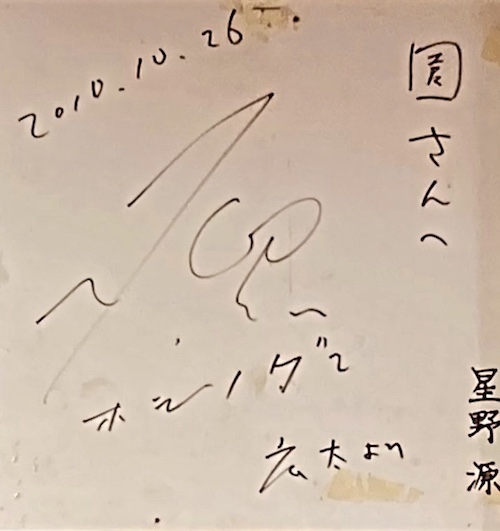 2010.10.26
園さんへ
ホシノゲン
広太より
星野源